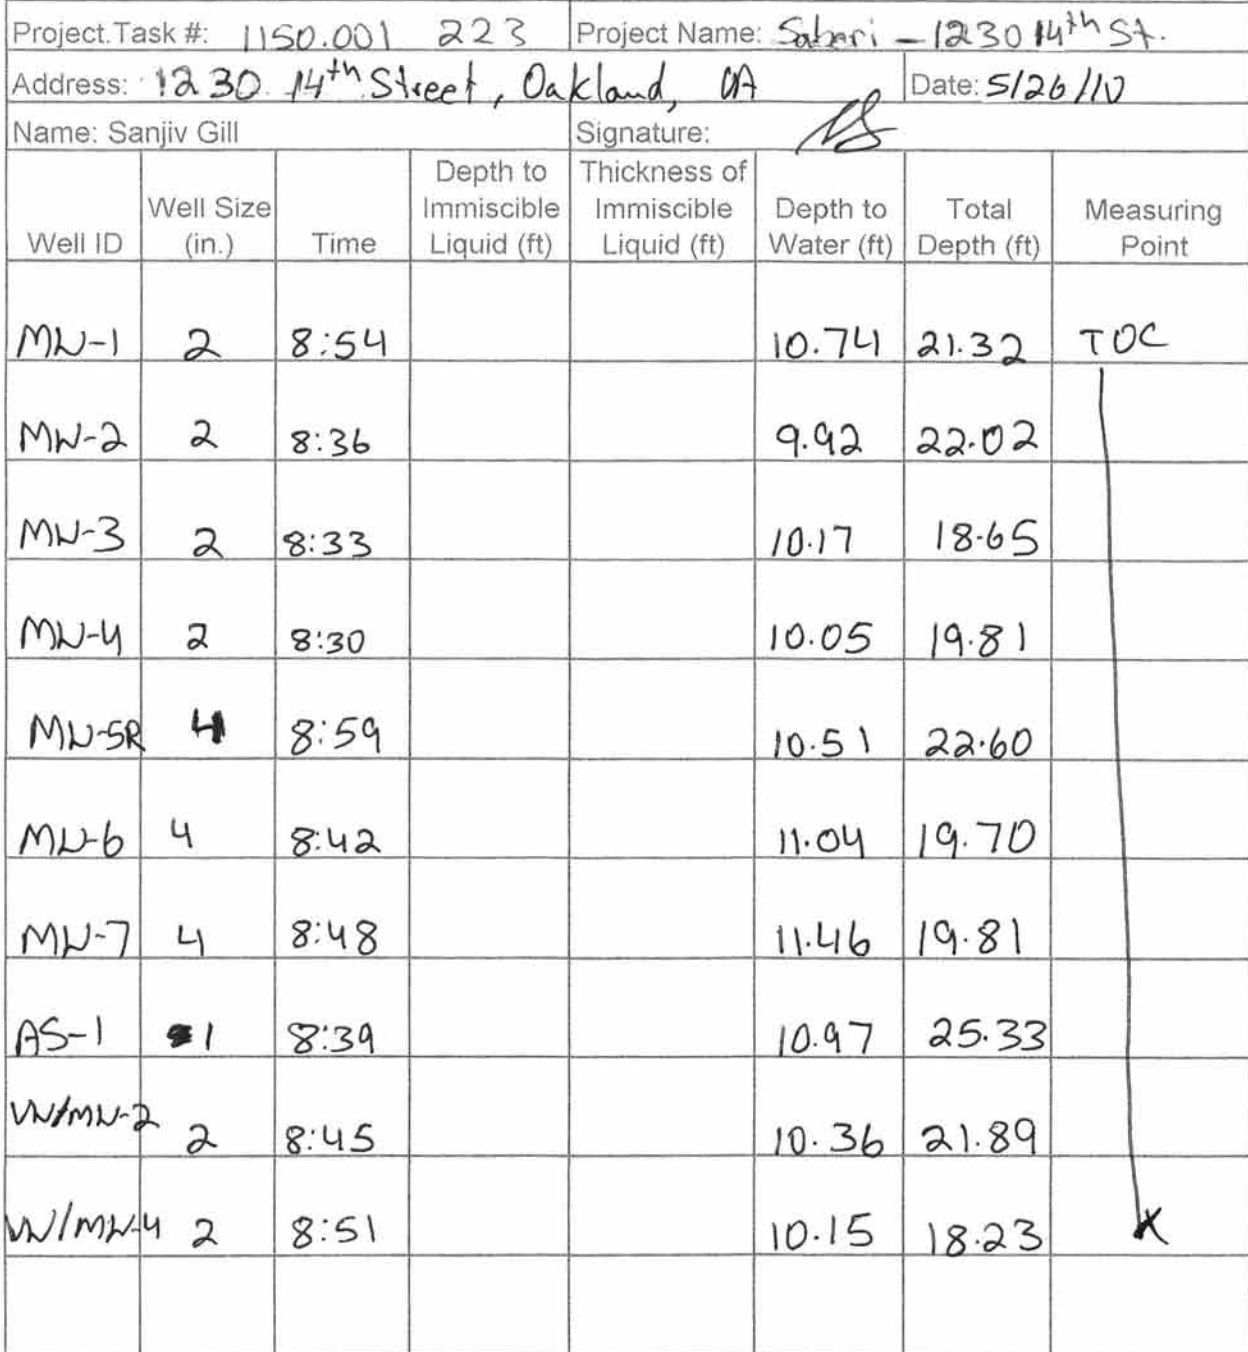 Project.Task #: 1150.001 223 Project Name: Saberi - 1230 14th St.
Address: 1230 14th Street, Oakland, CA Date: 5/26/10
Name: Sanjiv Gill Signature:
Well ID Well Size (in.) Time Depth to Immiscible Liquid (ft) Thickness of Immiscible Liquid (ft) Depth to Water (ft) Total Depth (ft) Measuring Point
MW-1 2 8:54 10.74 21.32 TOC
MW-2 2 8:36 9.92 22.02
MW-3 2 8:33 10.17 18.65
MW-4 2 8:30 10.05 19.81
MW-5R 4 8:59 10.51 22.60
MW-6 4 8:42 11.04 19.70
MW-7 4 8:48 11.46 19.81
AS-1 1 8:39 10.97 25.33
VW/MW-2 2 8:45 10.36 21.89
VW/MW-4 2 8:51 10.15 18.23